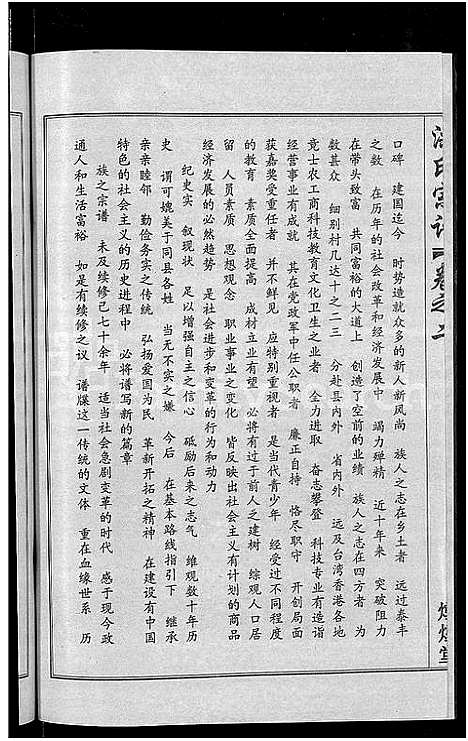 汪氏宗谱 卷之二
口碑 建国迄今 时势造就众多的新人新风尚 族人之志在乡土者 远过泰丰
之数 在历年的社会改革和经济发展中 竭力殚精 近十年来 突破阻力
在带头致富 共同富裕的大道上 创造了空前的业绩 族人之志在四方者 为
数甚众 细别村几达十之二三 分赴县内外 省内外 远及台湾香港各地
竞士农工商科技教育文化卫生之业者 全力进取 奋志攀登 科技专业有造诣
经营事业有成就 其在党政军中任公职者 廉正自持 恪尽职守 开创局面
获嘉奖受重任者 并不鲜见 应特别重视者 是当代青少年 经受过不同程度
的教育 素质全面提高 成材立业有望 必将有过于前人之建树 综观人口居
留 人员素质 思想观念 职业事业之变化 皆反映出社会主义有计划的商品
经济发展的必然趋势 是社会进步和变革的行为和动力
纪史实 叙现状 足以增强自主之信心 砥励后来之志气 维观数十年历
史 谓可媲美于同县各姓 当无不实之嫌 今后 在基本路线指引下 继承
亲亲睦邻 勤俭务实之传统 弘扬爱国为民 革新开拓之精神 在建设有中国
特色的社会主义的历史进程中 必将谱写新的篇章
族之宗谱 未及续修已七十余年 适当社会急剧变革的时代 感于现今政
通人和生活富裕 如是有续修之议 谱牒这一传统的文体 重在血缘世系 历